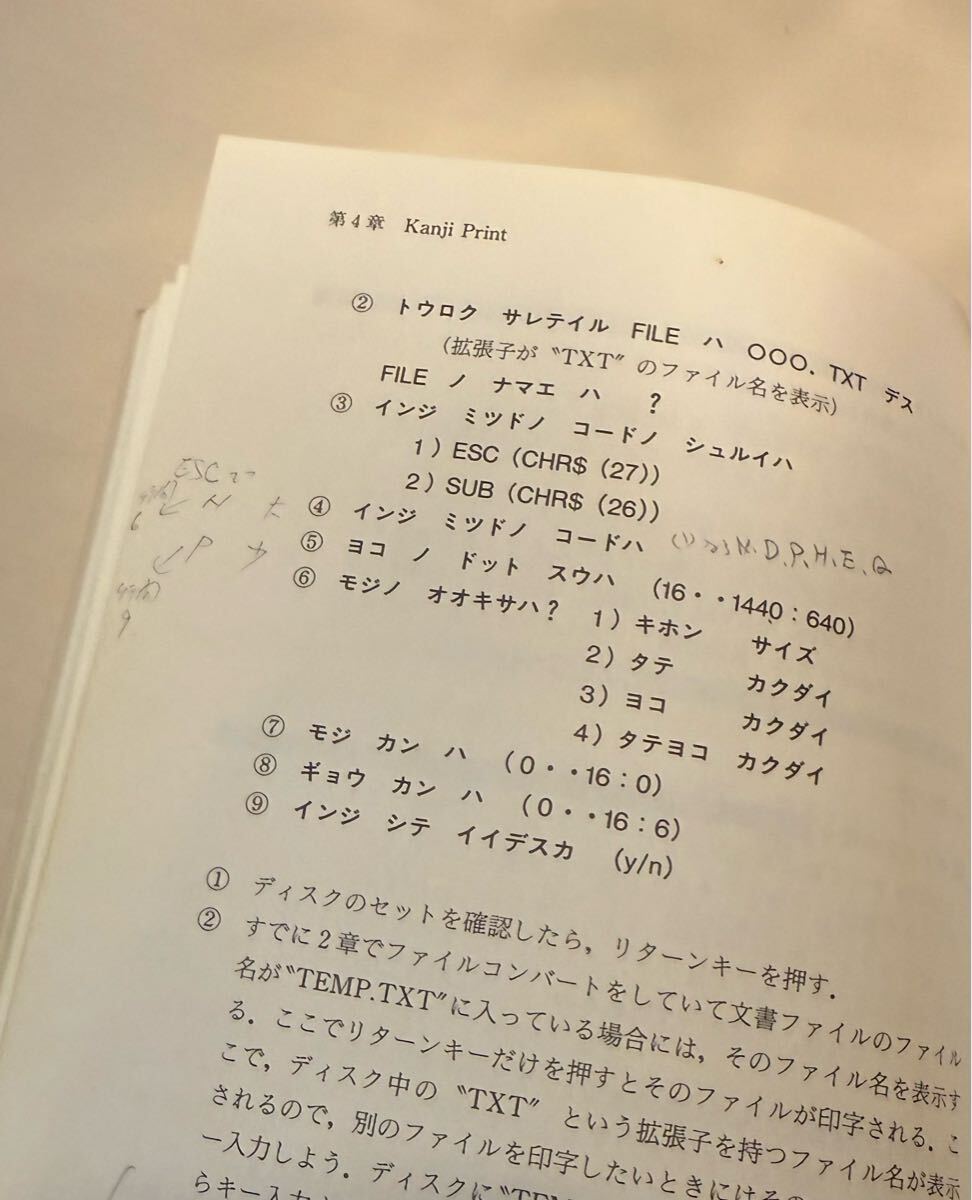 第4章 Kanji Print
② トウロク サレテイル FILE ハ 〇〇〇．TXT デス
(拡張子が〝TXT〞のファイル名を表示)
FILE ノ ナマエ ハ ？
③ インジ ミツドノ コードノ シュルイハ
1）ESC（CHR$（27））
2）SUB（CHR$（26））
④ インジ ミツドノ コードハ N.D.P.H.E.Q
⑤ ヨコ ノ ドット スウハ （16・・1440：640）
⑥ モジノ オオキサハ？ 1）キホン サイズ
2）タテ カクダイ
3）ヨコ カクダイ
4）タテヨコ カクダイ
⑦ モジ カン ハ （0・・16：0）
⑧ ギョウ カン ハ （0・・16：6）
⑨ インジ シテ イイデスカ （y/n）
ESC
N
6
P
9
① ディスクのセットを確認したら，リターンキーを押す．
② すでに2章でファイルコンバートをしていて文書ファイルのファイル
名が〝TEMP.TXT〞に入っている場合には，そのファイル名を表示す
る．ここでリターンキーだけを押すとそのファイルが印字される．こ
こで，ディスク中の〝TXT〞という拡張子を持つファイル名が表示
されるので，別のファイルを印字したいときにはその
ー入力しよう．ディスクに〝TEM
らキー入力